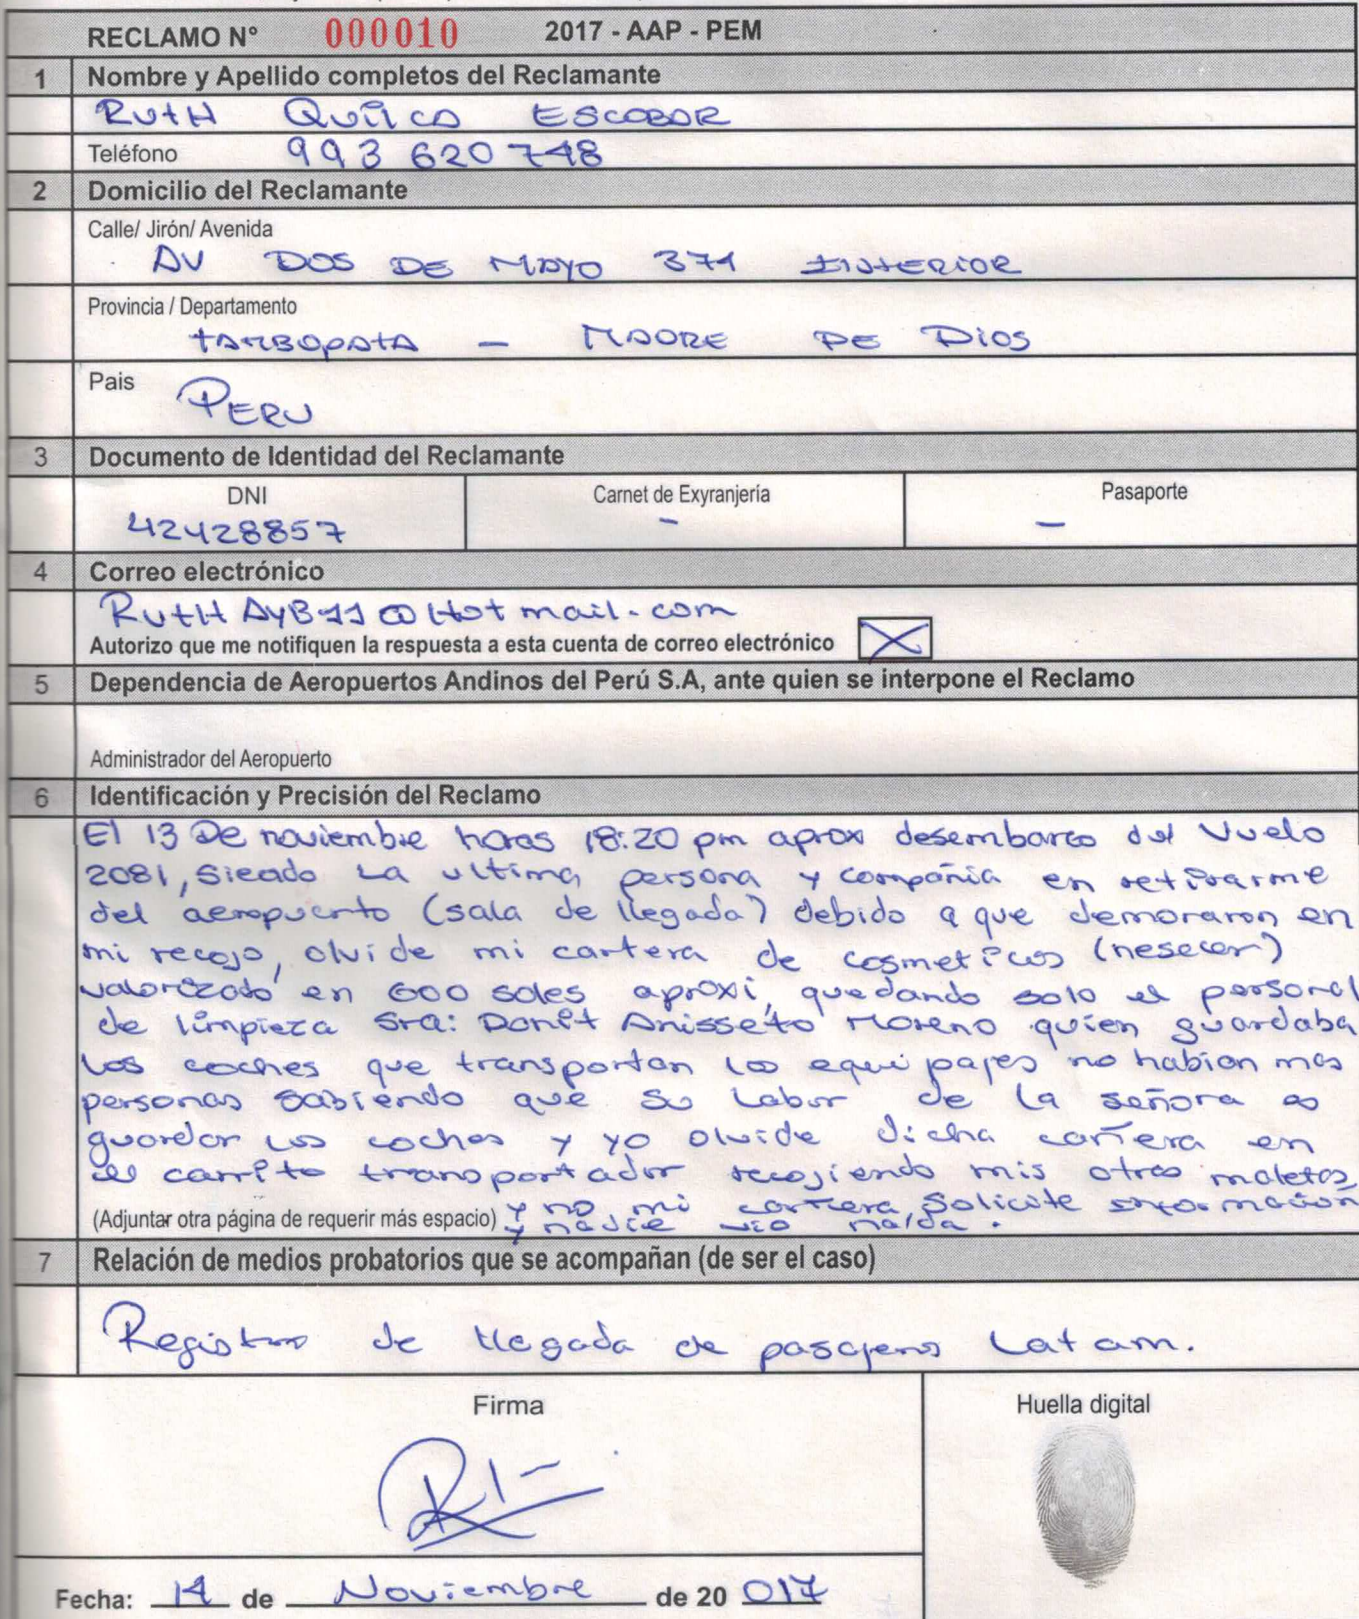 RECLAMO N° 000010 2017 - AAP - PEM
1 Nombre y Apellido completos del Reclamante
RUTH QUILCO ESCOBAR
Teléfono 993 620 748
2 Domicilio del Reclamante
Calle/ Jirón/ Avenida
AV DOS DE MAYO 371 INTERIOR
Provincia / Departamento
TAMBOPATA - MADRE DE DIOS
Pais PERU
3 Documento de Identidad del Reclamante
DNI Carnet de Exyranjería Pasaporte
42428857 - -
4 Correo electrónico
RUTHAYB11@Hotmail.com
Autorizo que me notifiquen la respuesta a esta cuenta de correo electrónico X
5 Dependencia de Aeropuertos Andinos del Perú S.A, ante quien se interpone el Reclamo
Administrador del Aeropuerto
6 Identificación y Precisión del Reclamo
El 13 De noviembre horas 18:20 pm aprox desembarco del Vuelo
2081, siendo la ultima persona y compañia en retirarme
del aeropuerto (sala de llegada) debido a que demoraron en
mi recojo, olvide mi cartera de cosmeticos (neseser)
valorizado en 600 soles aproxi, quedando solo el personal
de limpieza Sra: Danit Anisseto Moreno quien guardaba
los coches que transportan los equipajes no habian mas
personas sabiendo que su labor de la señora es
guardar los coches y yo olvide dicha cartera en
el carrito transportador recojiendo mis otras maletas
(Adjuntar otra página de requerir más espacio) y no mi cartera, Solicite informacion
y nadie vio nada.
7 Relación de medios probatorios que se acompañan (de ser el caso)
Registro de llegada de pasajeros Latam.
Firma Huella digital
Fecha: 14 de Noviembre de 20 017